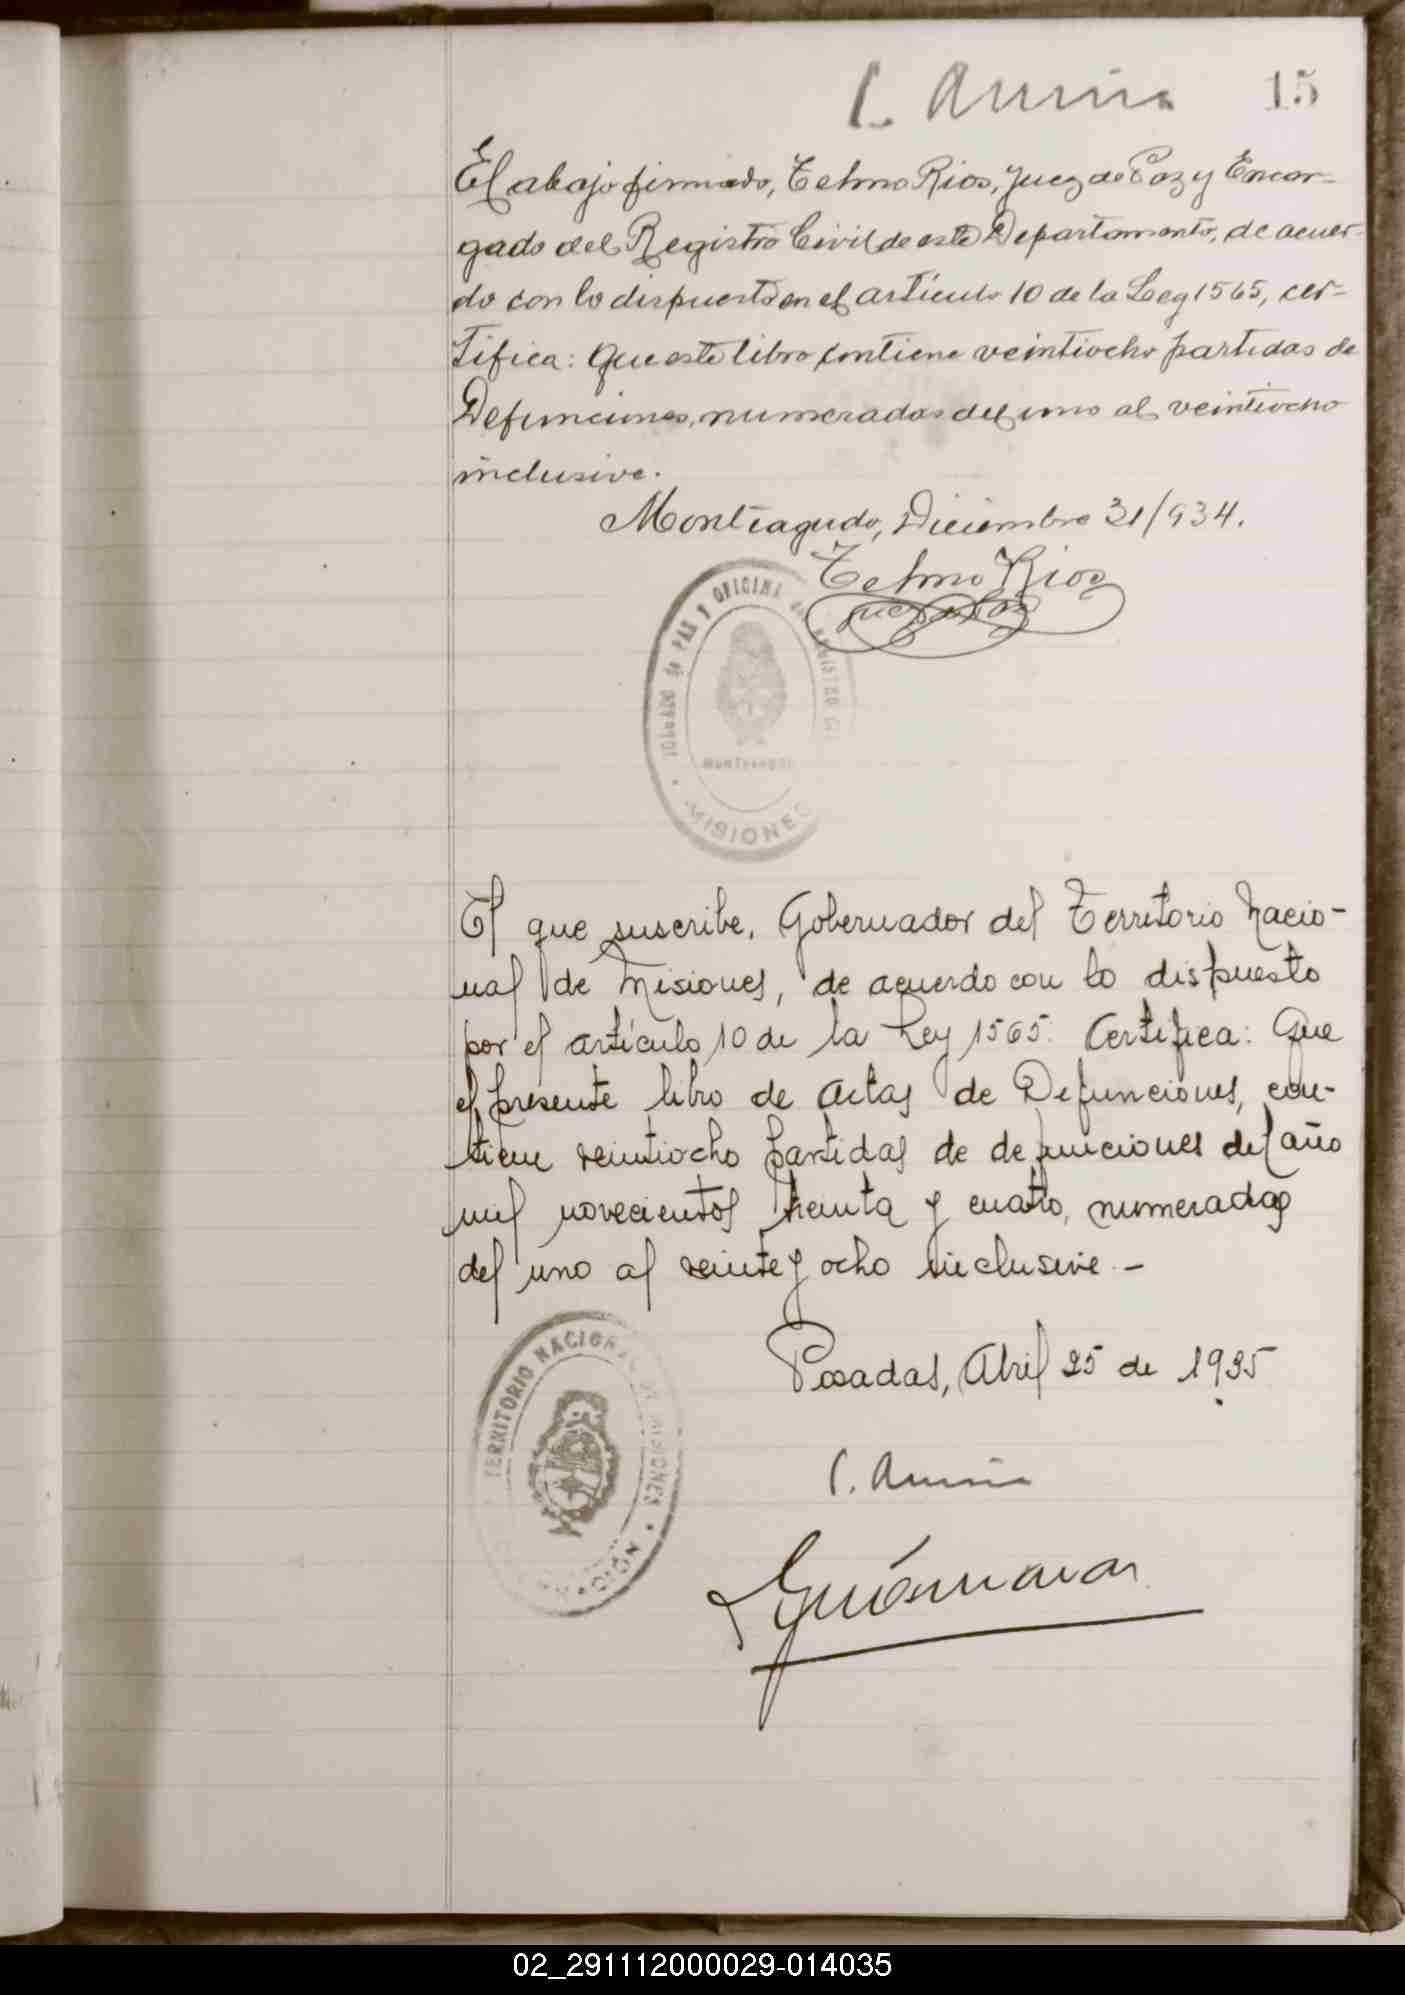 15
El abajo firmado, Telmo Rios, Juez de Paz y Encar-
gado del Registro Civil de este Departamento, de acuer-
do con lo dispuesto en el artículo 10 de la Ley 1565, cer-
tifica: Que este libro contiene veintiocho partidas de
Defunciones, numeradas del uno al veintiocho
inclusive.
Monteagudo, Diciembre 31/934.
Telmo Rios
Juez de Paz
JUZGADO de PAZ Y OFICINA del REGISTRO
MONTEAGUDO
MISIONES
El que suscribe, Gobernador del Territorio Nacio-
nal de Misiones, de acuerdo con lo dispuesto
por el artículo 10 de la Ley 1565: Certifica: Que
el presente libro de actas de Defunciones, con-
tiene veintiocho partidas de defunciones del año
mil novecientos treinta y cuatro, numeradas
del uno al veinte y ocho inclusive.-
Posadas, Abril 25 de 1935
TERRITORIO NACIONAL DE MISIONES
02_291112000029-014035